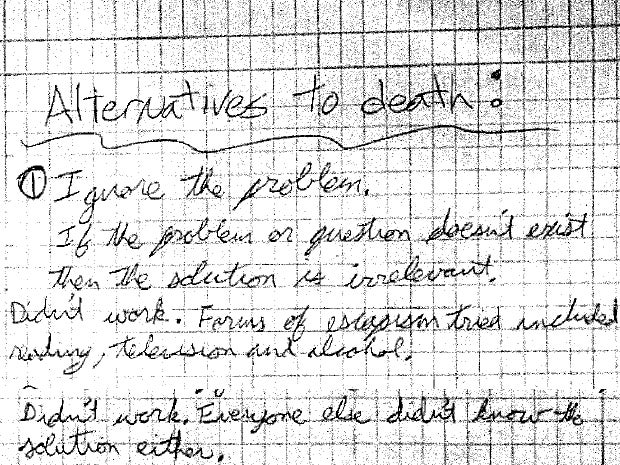 Alternatives to death:
① Ignore the problem.
If the problem or question doesn't exist
then the solution is irrelevant.
Didn't work. Forms of escapism tried included
reading, television and alcohol.
Didn't work. Everyone else didn't know the
solution either.